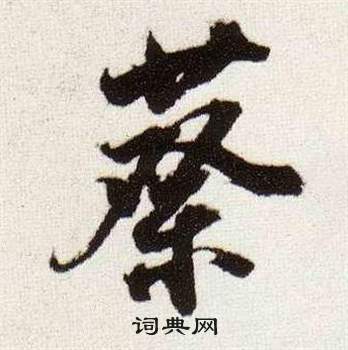 蔡
词典网